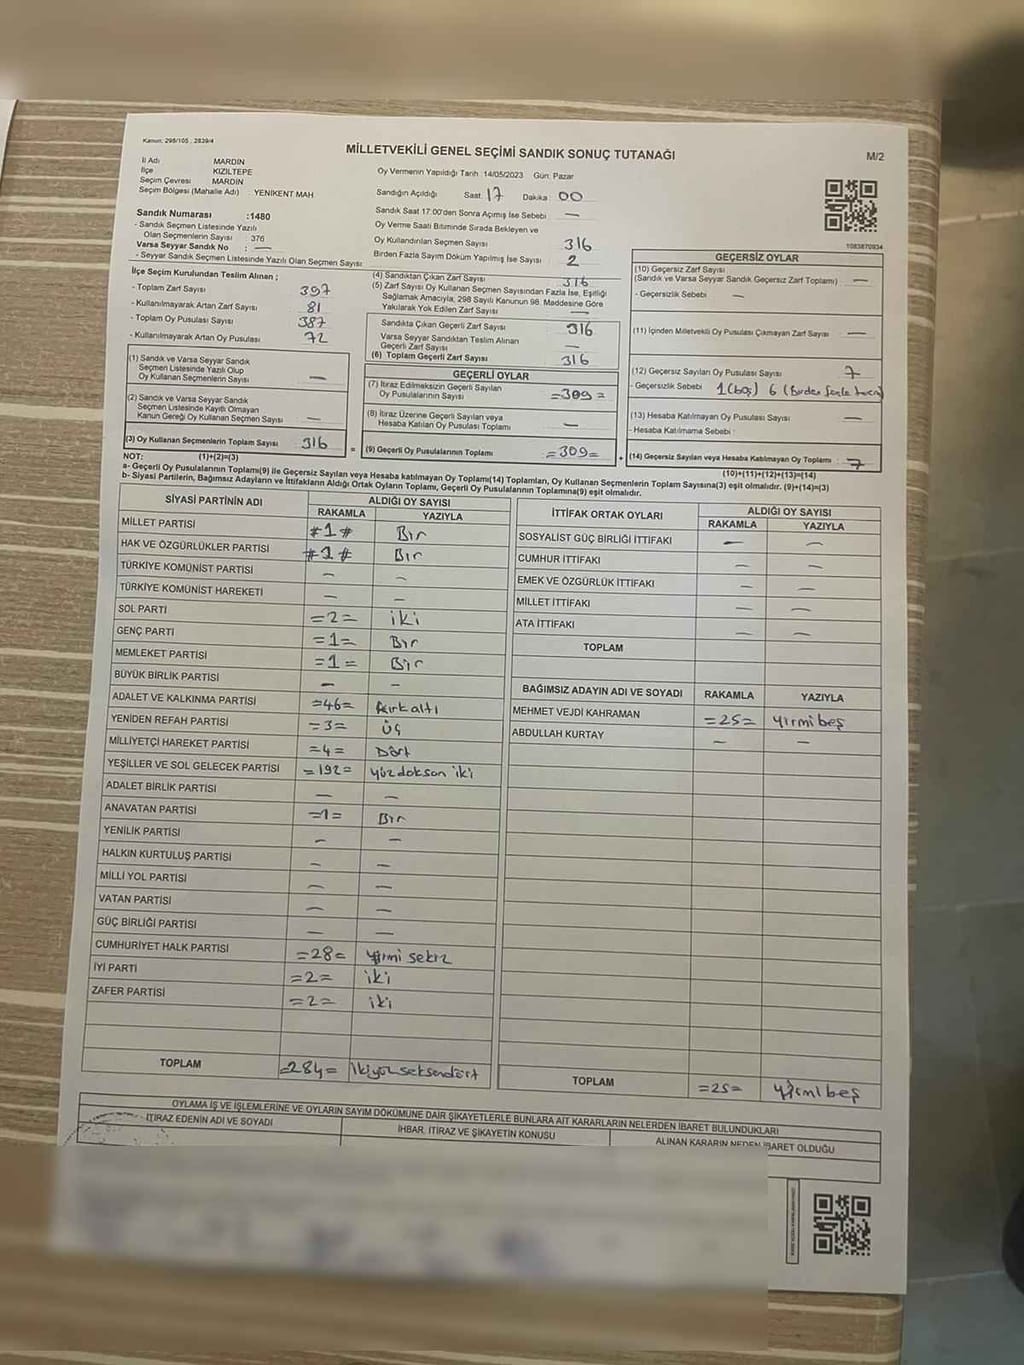 Kanun: 298/105 ; 2839/4
MİLLETVEKİLİ GENEL SEÇİMİ SANDIK SONUÇ TUTANAĞI
M/2
İl Adı MARDİN
İlçe KIZILTEPE
Seçim Çevresi MARDİN
Seçim Bölgesi (Mahalle Adı) : YENİKENT MAH
Sandık Numarası :1480
- Sandık Seçmen Listesinde Yazılı
Olan Seçmenlerin Sayısı : 376
Varsa Seyyar Sandık No : —
- Seyyar Sandık Seçmen Listesinde Yazılı Olan Seçmen Sayısı:
İlçe Seçim Kurulundan Teslim Alınan ;
- Toplam Zarf Sayısı 397
- Kullanılmayarak Artan Zarf Sayısı 81
- Toplam Oy Pusulası Sayısı 387
- Kullanılmayarak Artan Oy Pusulası 72
(1) Sandık ve Varsa Seyyar Sandık
Seçmen Listesinde Yazılı Olup
Oy Kullanan Seçmenlerin Sayısı —
(2) Sandık ve Varsa Seyyar Sandık
Seçmen Listesinde Kayıtlı Olmayan
Kanun Gereği Oy Kullanan Seçmen Sayısı —
(3) Oy Kullanan Seçmenlerin Toplam Sayısı 316
Oy Vermenin Yapıldığı Tarih :14/05/2023 Gün: Pazar
Sandığın Açıldığı Saat 17 Dakika 00
Sandık Saat 17:00'den Sonra Açmış İse Sebebi —
Oy Verme Saati Bitiminde Sırada Bekleyen ve
Oy Kullandırılan Seçmen Sayısı 316
Birden Fazla Sayım Döküm Yapılmış İse Sayısı 2
(4) Sandıktan Çıkan Zarf Sayısı 316
(5) Zarf Sayısı Oy Kullanan Seçmen Sayısından Fazla İse, Eşitliği
Sağlamak Amacıyla, 298 Sayılı Kanunun 98. Maddesine Göre
Yakılarak Yok Edilen Zarf Sayısı —
Sandıkta Çıkan Geçerli Zarf Sayısı 316
Varsa Seyyar Sandıktan Teslim Alınan
Geçerli Zarf Sayısı —
(6) Toplam Geçerli Zarf Sayısı 316
GEÇERLİ OYLAR
(7) İtiraz Edilmeksizin Geçerli Sayılan
Oy Pusulalarının Sayısı =309=
(8) İtiraz Üzerine Geçerli Sayılan veya
Hesaba Katılan Oy Pusulası Toplamı —
= (9) Geçerli Oy Pusulalarının Toplamı =309=
1083870934
GEÇERSİZ OYLAR
(10) Geçersiz Zarf Sayısı
(Sandık ve Varsa Seyyar Sandık Geçersiz Zarf Toplamı) —
- Geçersizlik Sebebi —
(11) İçinden Milletvekili Oy Pusulası Çıkmayan Zarf Sayısı —
(12) Geçersiz Sayılan Oy Pusulası Sayısı 7
- Geçersizlik Sebebi 1(boş) 6 (Birden fazla
(13) Hesaba Katılmayan Oy Pusulası Sayısı —
- Hesaba Katılmama Sebebi :
+ (14) Geçersiz Sayılan veya Hesaba Katılmayan Oy Toplamı 7
NOT: (1)+(2)=(3)
(10)+(11)+(12)+(13)=(14)
a- Geçerli Oy Pusulalarının Toplamı(9) ile Geçersiz Sayılan veya Hesaba katılmayan Oy Toplamı(14) Toplamları, Oy Kullanan Seçmenlerin Toplam Sayısına(3) eşit olmalıdır. (9)+(14)=(3)
b- Siyasi Partilerin, Bağımsız Adayların ve İttifakların Aldığı Ortak Oyların Toplamı, Geçerli Oy Pusulalarının Toplamına(9) eşit olmalıdır.
SİYASİ PARTİNİN ADI ALDIĞI OY SAYISI
RAKAMLA YAZIYLA
MİLLET PARTİSİ #1# Bir
HAK VE ÖZGÜRLÜKLER PARTİSİ #1# Bir
TÜRKİYE KOMÜNİST PARTİSİ — —
TÜRKİYE KOMÜNİST HAREKETİ — —
SOL PARTİ =2= iki
GENÇ PARTİ =1= Bir
MEMLEKET PARTİSİ =1= Bir
BÜYÜK BİRLİK PARTİSİ — —
ADALET VE KALKINMA PARTİSİ =46= kırkaltı
YENİDEN REFAH PARTİSİ =3= üç
MİLLİYETÇİ HAREKET PARTİSİ =4= Dört
YEŞİLLER VE SOL GELECEK PARTİSİ =192= yüzdoksan iki
ADALET BİRLİK PARTİSİ — —
ANAVATAN PARTİSİ =1= Bir
YENİLİK PARTİSİ — —
HALKIN KURTULUŞ PARTİSİ — —
MİLLİ YOL PARTİSİ — —
VATAN PARTİSİ — —
GÜÇ BİRLİĞİ PARTİSİ — —
CUMHURİYET HALK PARTİSİ =28= yirmi sekiz
İYİ PARTİ =2= iki
ZAFER PARTİSİ =2= iki
TOPLAM =284= ikiyüzseksendört
İTTİFAK ORTAK OYLARI ALDIĞI OY SAYISI
RAKAMLA YAZIYLA
SOSYALİST GÜÇ BİRLİĞİ İTTİFAKI — —
CUMHUR İTTİFAKI — —
EMEK VE ÖZGÜRLÜK İTTİFAKI — —
MİLLET İTTİFAKI — —
ATA İTTİFAKI — —
TOPLAM
BAĞIMSIZ ADAYIN ADI VE SOYADI RAKAMLA YAZIYLA
MEHMET VEJDİ KAHRAMAN =25= yirmibeş
ABDULLAH KURTAY — —
TOPLAM =25= yirmibeş
OYLAMA İŞ VE İŞLEMLERİNE VE OYLARIN SAYIM DÖKÜMÜNE DAİR ŞİKAYETLERLE BUNLARA AİT KARARLARIN NELERDEN İBARET BULUNDUKLARI
İTİRAZ EDENİN ADI VE SOYADI
İHBAR, İTİRAZ VE ŞİKAYETİN KONUSU
ALINAN KARARIN NEDEN İBARET OLDUĞU